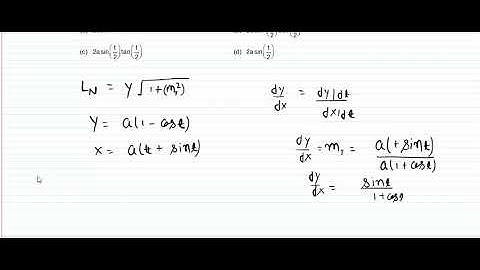 (c) 2a sin(1/2) tan(1/2)
(d) 2a sin(1/2)
L_N = y √(1+(m₁²))
y = a(1 - cos t)
x = a(t + sin t)
dy/dx = (dy/dt)/(dx/dt)
dy/dx = m₁ = a(+sin t)/a(1+cos t)
dy/dx = sin t/(1+cos t)